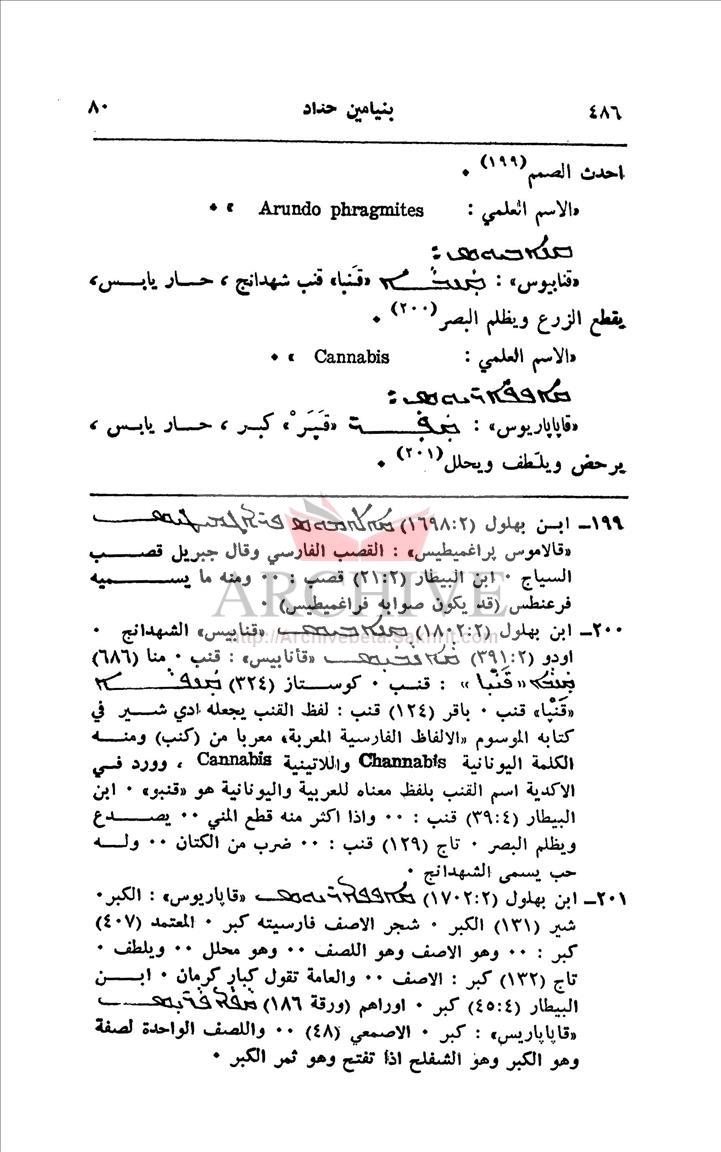 ٤٨٦ بنيامين حنداد ٨٠
احدث الصمم(١٩٩) ٠
«الاسم العلمي : Arundo phragmites » ٠
«قنابيوس» : «قَنبا» قنب شهدانج ، حــار يابــس،
يقطع الزرع ويظلم البصر(٢٠٠) ٠
«الاسم العلمي : Cannabis » ٠
«قاپاپاريوس» : «قَپَر» كبــر ، حــار يابس ،
يرحض ويلطف ويحلل(٢٠١) ٠
١٩٩ــ ابــن بهلول (١٦٩٨:٢)
«قالاموس پراغميطيس» : القصب الفارسي وقال جبريل قصــب
السياج ٠ ابن البيطار (٢١:٢) قصب : ٠٠ ومنه ما يســميه
فرعنطس (قد يكون صوابه فراغميطيس) ٠
ARCHIVE
http://Archivebeta.Sakhrit.com
٢٠٠ــ ابن بهلول (١٨٠٢:٢) «قنابيس» الشهدانج ٠
اودو (٣٩١:٢) «قأنابيس» : قنب ٠ منا (٦٨٦)
«قَنْبا» : قنب ٠ كوستاز (٣٢٤)
«قَنْپا» قنب ٠ باقر (١٢٤) قنب : لفظ القنب يجعله ادي شــير في
كتابه الموسوم «الالفاظ الفارسية المعربة» معربا من (كنب) ومنــه
الكلمة اليونانية Channabis واللاتينية Cannabis ، وورد فــي
الاكدية اسم القنب بلفظ معناه للعربية واليونانية هو «قنبو» ٠ ابن
البيطار (٣٩:٤) قنب : ٠٠ واذا اكثر منه قطع المني ٠٠ يصــدع
ويظلم البصر ٠ تاج (١٢٩) قنب : ٠٠ ضرب من الكتان ٠٠ ولــه
حب يسمى الشهدانج ٠
٢٠١ــ ابن بهلول (١٧٠٢:٢) «قاپاريوس» : الكبر٠
شير (١٣١) الكبر ٠ شجر الاصف فارسيته كبر ٠ المعتمد (٤٠٧)
كبر : ٠٠ وهو الاصف وهو اللصف ٠٠ وهو محلل ٠٠ ويلطف ٠
تاج (١٣٢) كبر : الاصف ٠٠ والعامة تقول كبار كرمان ٠ ابــن
البيطار (٤٥:٤) كبر ٠ اوراهم (ورقة ١٨٦)
«قاپاپاريس» : كبر ٠ الاصمعي (٤٨) ٠٠ واللصف الواحدة لصفة
وهو الكبر وهو الشفلح اذا تفتح وهو ثمر الكبر ٠